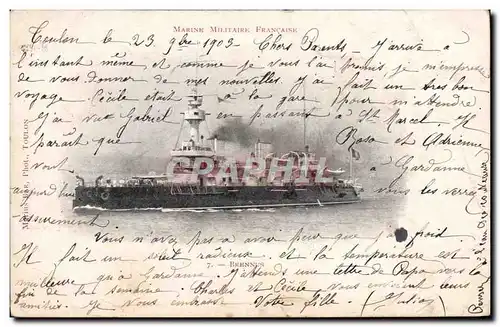 MARINE MILITAIRE FRANÇAISE
Toulon le 23 9bre 1903. Chers Parents - J'arrive à
l'instant même et comme je vous l'ai promis je m'empresse
de vous donner de mes nouvelles. J'ai fait un très bon
voyage. Cécile était à la gare pour m'attendre
J'ai vu Gabriel en passant à St Marcel. Il
paraît que Rosa et Adrienne
vont à Gardanne
aujourd'hui vous les verrez
assurement.
CARPH
Vous n'avez pas à avoir peur que j'ai froid
Il fait un soleil radieux et la température est
7. - BRENNUS
meilleure qu'à Gardanne. J'attends une lettre de Papa vers la
fin de la semaine. Charles et Cécile vous embrassent
Je vous embrasse Votre fille
Phot., TOULON